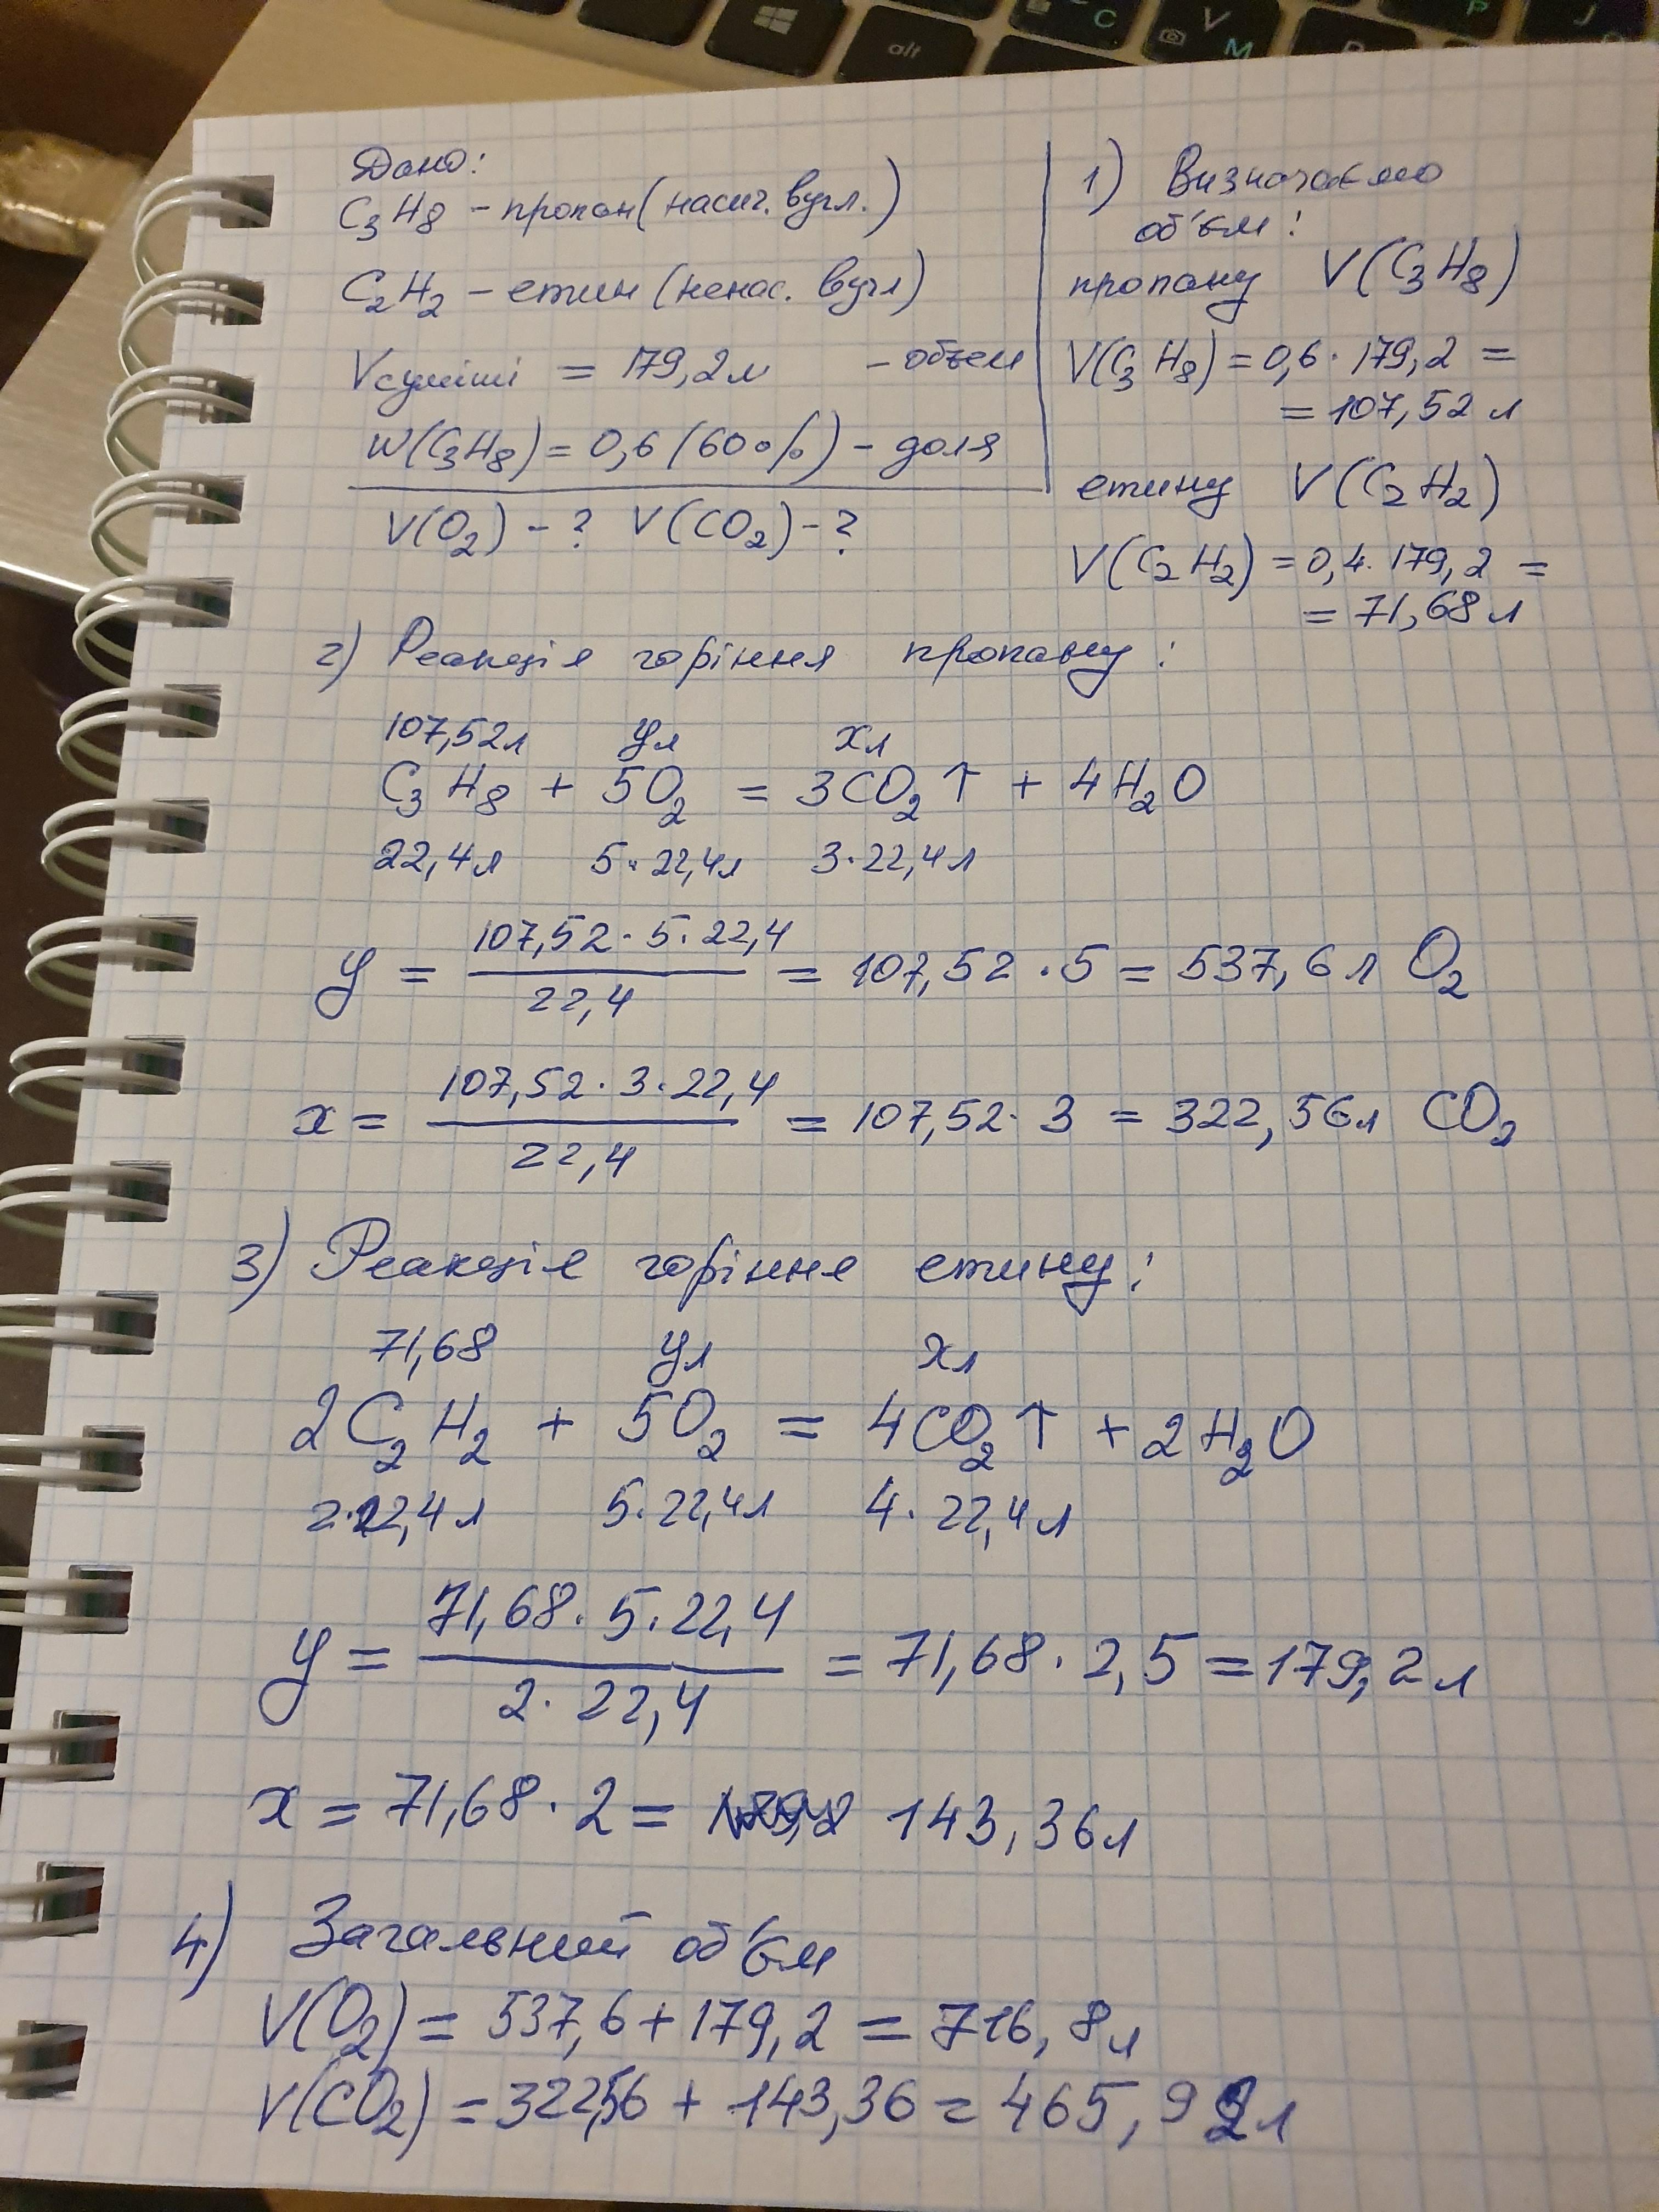 alt
C
V
M
P
J
Дано:
C₃H₈ – пропан (насич. вугл.)
C₂H₂ – етин (ненас. вугл)
Vсуміші = 179,2 л – обьем
W(C₃H₈) = 0,6 (60%) – доля
V(O₂) – ? V(CO₂) – ?
1) Визначаємо
об'єм:
пропану V(C₃H₈)
V(C₃H₈) = 0,6 · 179,2 =
= 107,52 л
етину V(C₂H₂)
V(C₂H₂) = 0,4 · 179,2 =
= 71,68 л
2) Реакція горіння пропану:
107,52л ул хл
C₃H₈ + 5O₂ = 3CO₂↑ + 4H₂O
22,4л 5·22,4л 3·22,4л
y = 107,52 · 5 · 22,4 / 22,4 = 107,52 · 5 = 537,6 л O₂
x = 107,52 · 3 · 22,4 / 22,4 = 107,52 · 3 = 322,56л CO₂
3) Реакція горіння етину:
71,68 ул хл
2C₂H₂ + 5O₂ = 4CO₂↑ + 2H₂O
2·22,4 л 5·22,4л 4·22,4л
y = 71,68 · 5 · 22,4 / 2 · 22,4 = 71,68 · 2,5 = 179,2 л
x = 71,68 · 2 = 143,36л
4) Загальний об'єм
V(O₂) = 537,6 + 179,2 = 716,8л
V(CO₂) = 322,56 + 143,36 = 465,92л